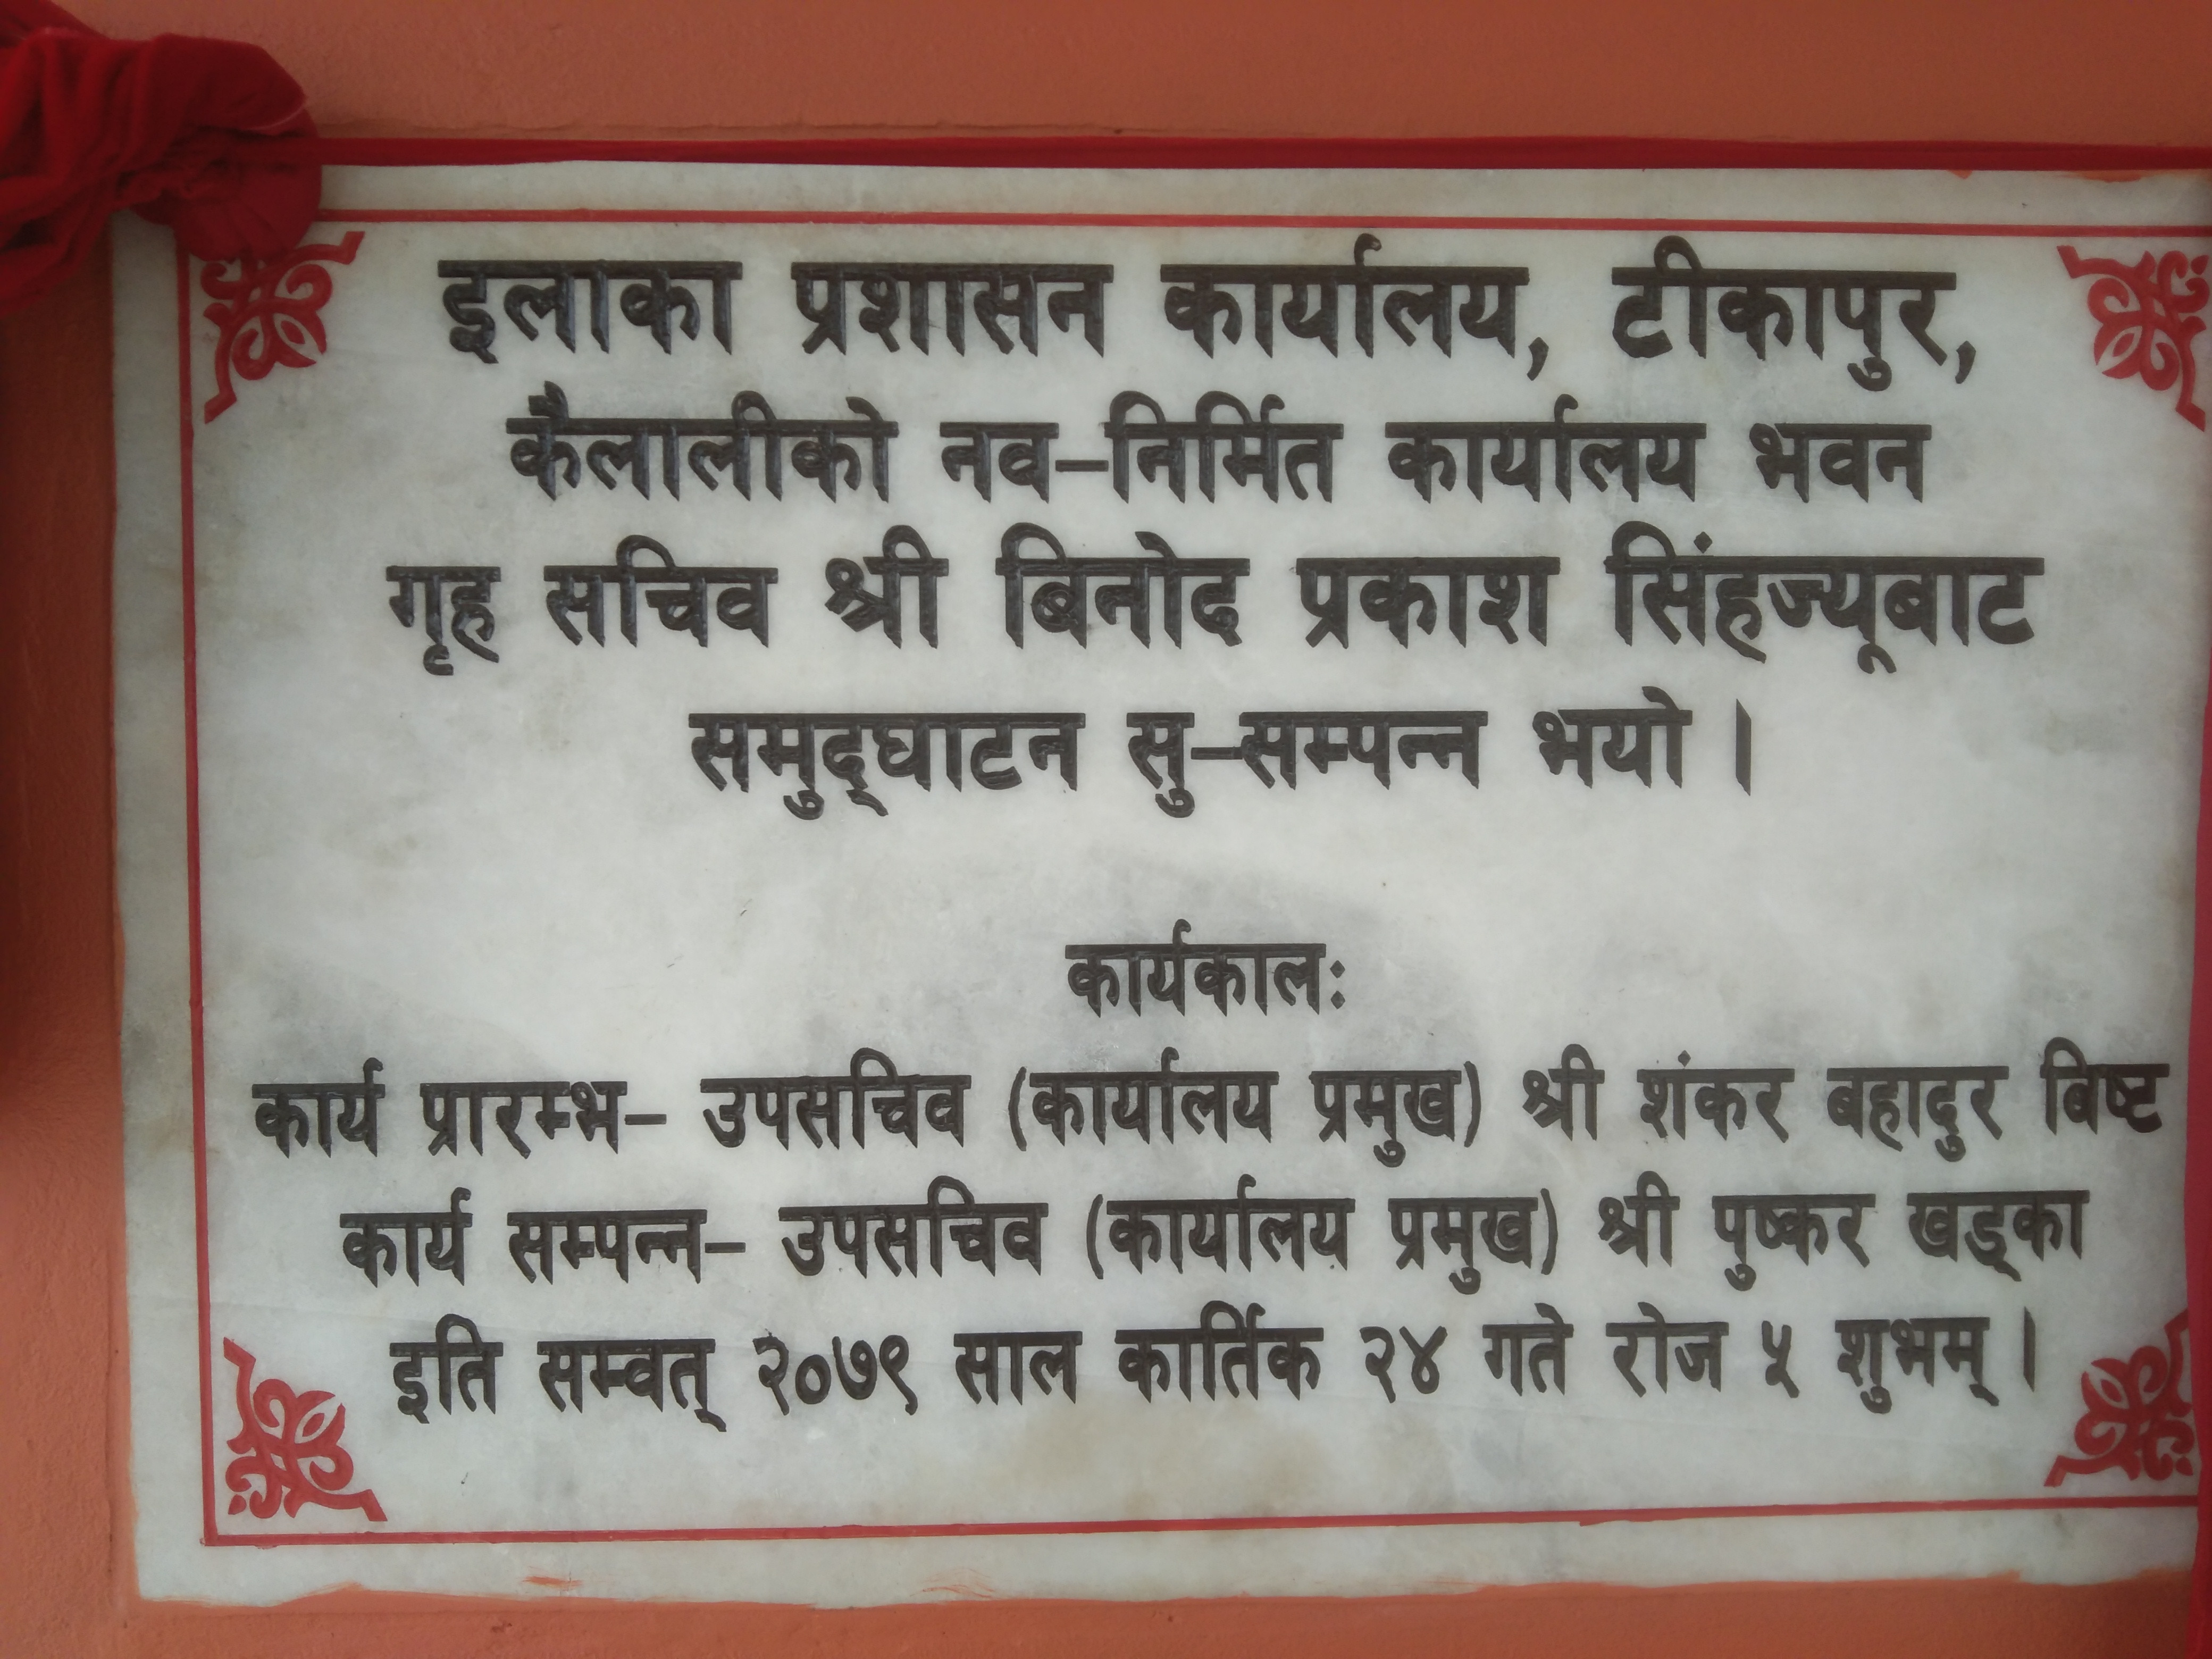 इलाका प्रशासन कार्यालय, टीकापुर,
कैलालीको नव–निर्मित कार्यालय भवन
गृह सचिव श्री बिनोद प्रकाश सिंहज्यूबाट
समुद्‌घाटन सु–सम्पन्न भयो ।
कार्यकालः
कार्य प्रारम्भ– उपसचिव (कार्यालय प्रमुख) श्री शंकर बहादुर विष्ट
कार्य सम्पन्न– उपसचिव (कार्यालय प्रमुख) श्री पुष्कर खड्का
इति सम्वत् २०७९ साल कार्तिक २४ गते रोज ५ शुभम् ।